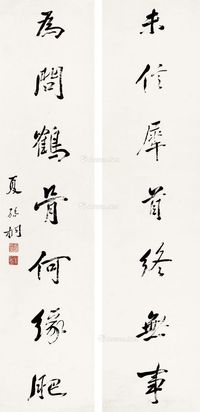 未信犀首终無事
為問鶴骨何緣肥
夏孫桐